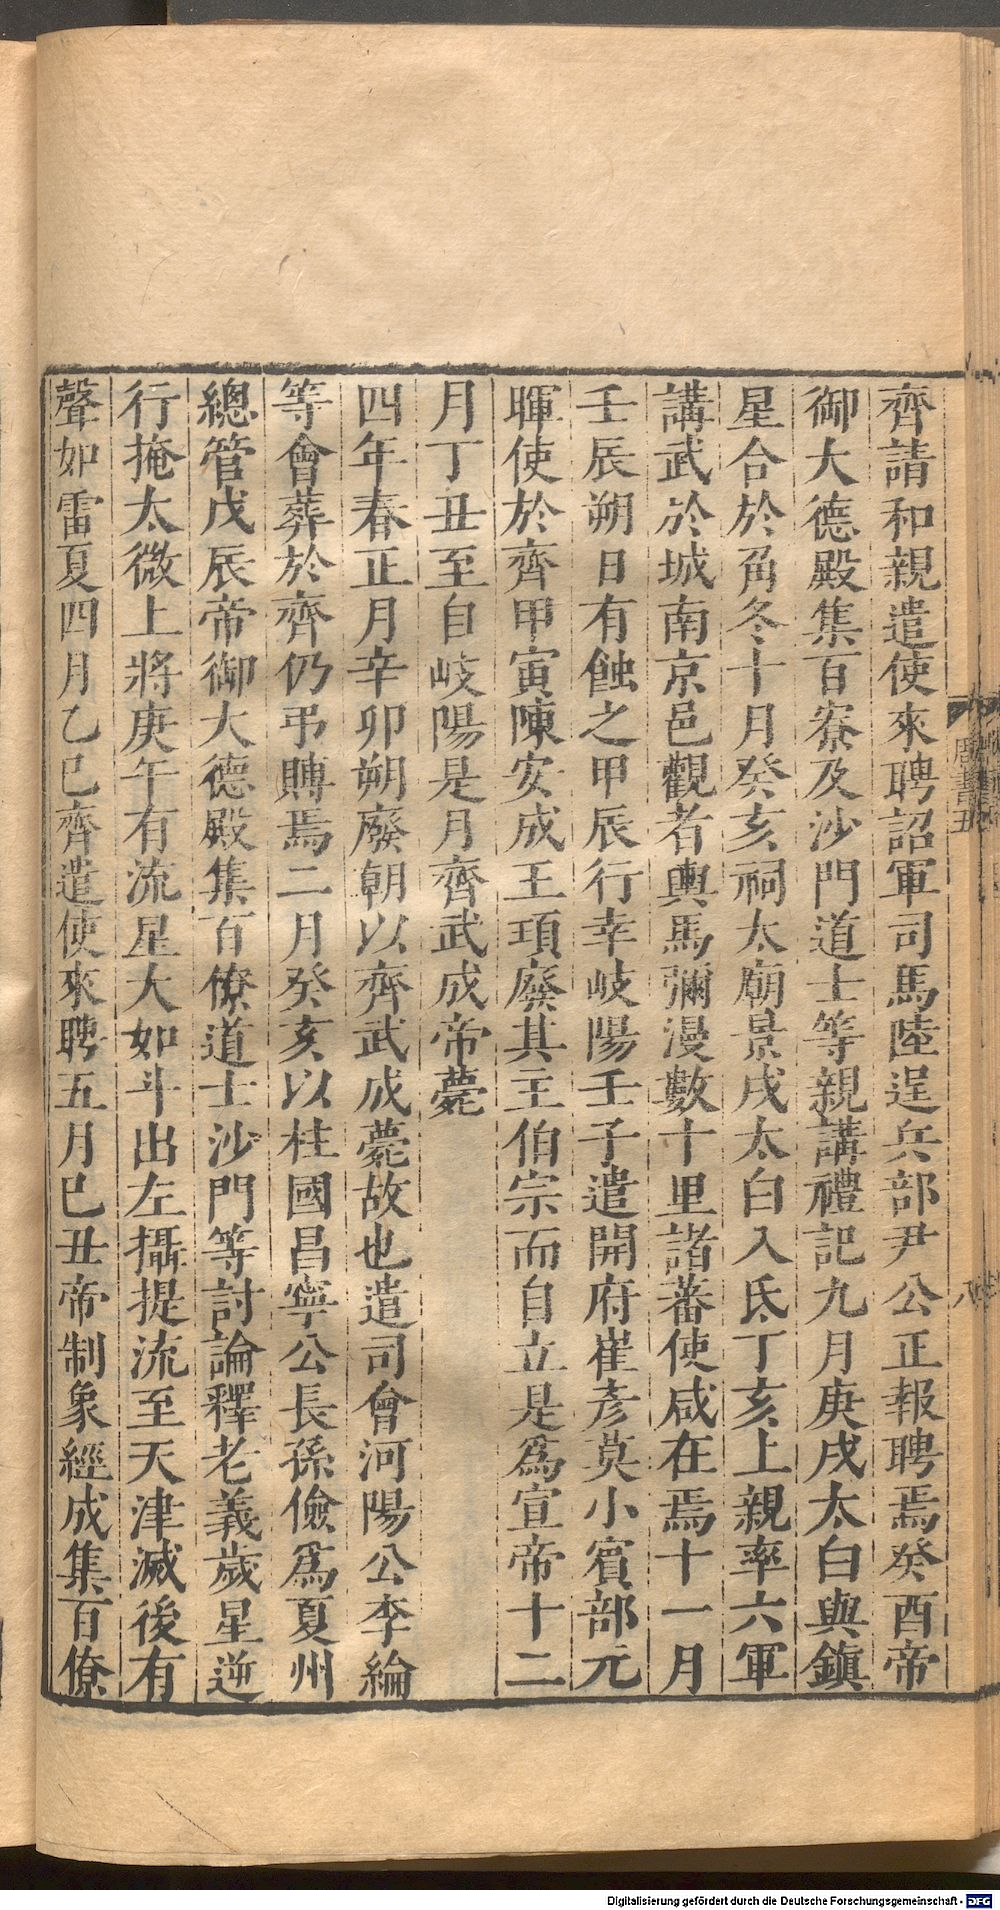 齊請和親遣使來聘詔軍司馬陸逞兵部尹公正報聘焉癸酉帝
御大德殿集百寮及沙門道士等親講禮記九月庚戌太白與鎮
星合於角冬十月癸亥祠太廟景戌太白入氐丁亥上親率六軍
講武於城南京邑觀者輿馬彌漫數十里諸蕃使咸在焉十一月
壬辰朔日有蝕之甲辰行幸岐陽壬子遣開府崔彥莫小賓部元
暉使於齊甲寅陳安成王頊廢其主伯宗而自立是爲宣帝十二
月丁丑至自岐陽是月齊武成帝薨
四年春正月辛卯朔廢朝以齊武成薨故也遣司會河陽公李綸
等會葬於齊仍弔賻焉二月癸亥以柱國昌寧公長孫儉爲夏州
總管戊辰帝御大德殿集百僚道士沙門等討論釋老義歲星逆
行掩太微上將庚午有流星大如斗出左攝提流至天津滅後有
聲如雷夏四月乙巳齊遣使來聘五月巳丑帝制象經成集百僚
周書五
八
Digitalisierung gefördert durch die Deutsche Forschungsgemeinschaft - DFG